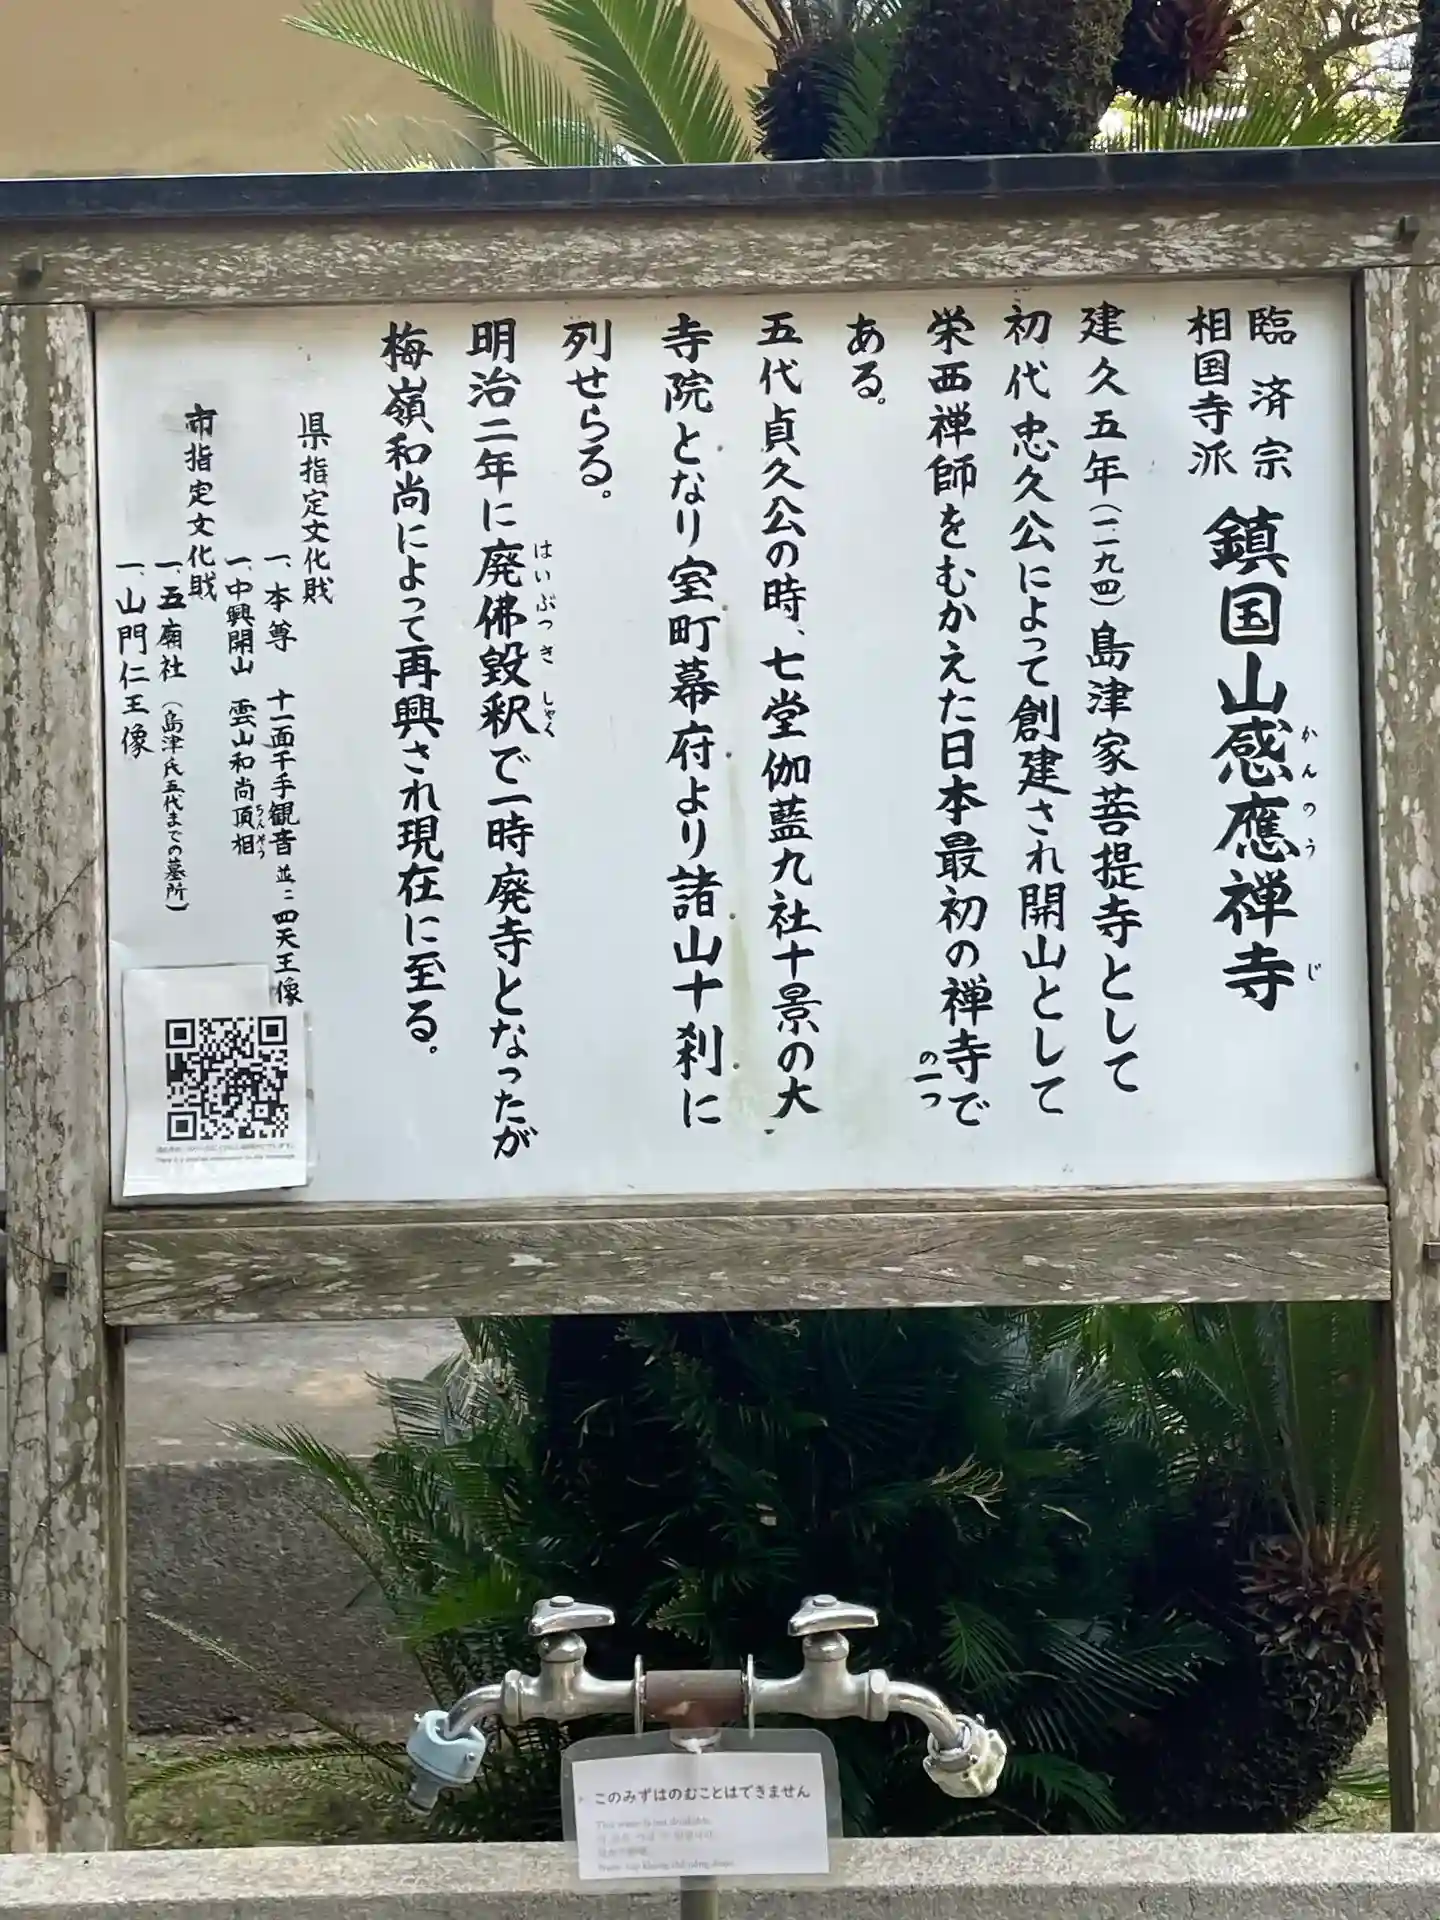 臨済宗
相国寺派
鎮国山感應禅寺
かんのう じ
建久五年(一一九四)島津家菩提寺として
初代忠久公によって創建され開山として
栄西禅師をむかえた日本最初の禅寺で
の一つ
ある。
五代貞久公の時、七堂伽藍九社十景の大
寺院となり室町幕府より諸山十刹に
列せらる。
明治二年に廃佛毀釈で一時廃寺となったが
はいぶつきしゃく
梅嶺和尚によって再興され現在に至る。
県指定文化財
一、本尊 十一面千手観音並ニ四天王像
一、中興開山 雲山和尚頂相
ちんそう
市指定文化財
一、五廟社(島津氏五代までの墓所)
一、山門仁王像
このみずはのむことはできません
This water is not drinkable.